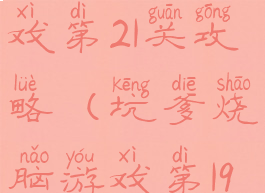 xì dì guān gōng
戏第21关攻
lüè kēng diē shāo
略（坑爹烧
nǎo yóu xì dì
脑游戏第19